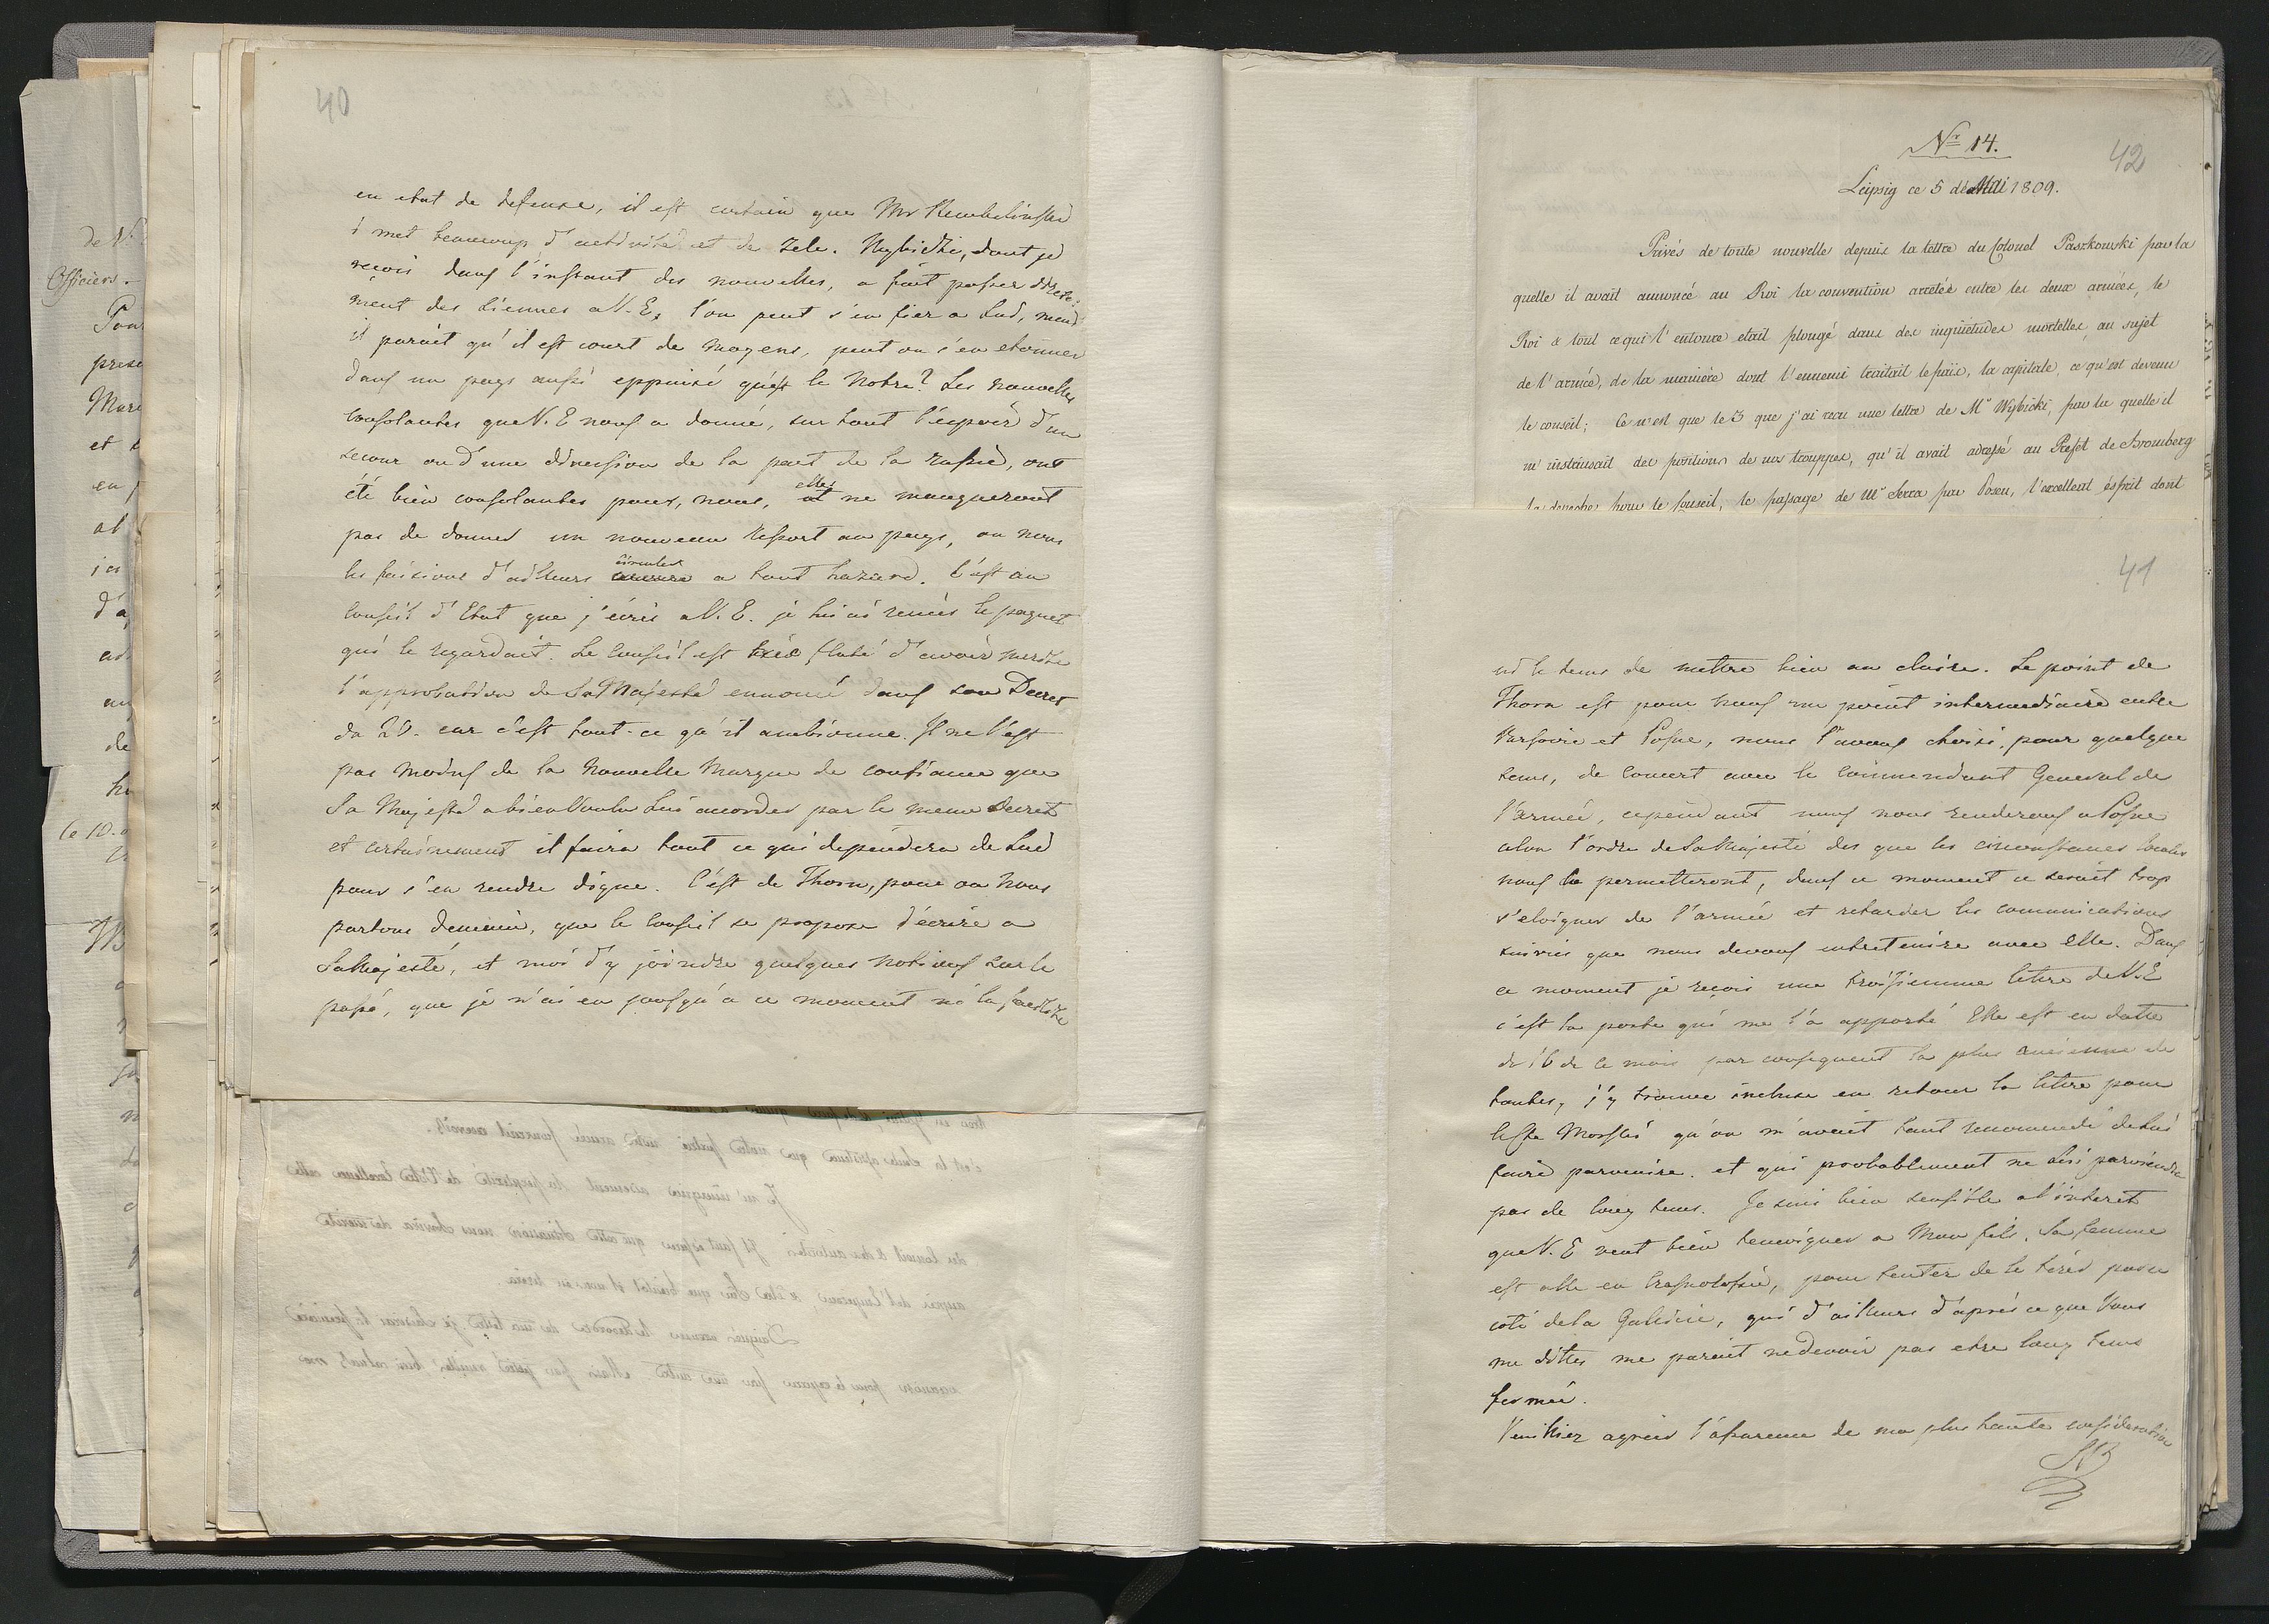 40
en etat de defense, il est certain que Mr Rembelinski
i met beaucoup d'activité et de zele. Wybicki, dont je
reçois dans l'instant des nouvelles, a fait passer directe-
ment des siennes a V. E. l'on peut s'en fier a lui, mais
il parait qu'il est court de moyens, peut on s'en etonner
dans un pays aussi eppuisé qu'est le Notre? Les nouvelles
consolantes que V. E nous a donné, sur tout l'espoir d'un
secour ou d'une diversion de la part de la Russie, ont
été bien consolantes pour nous, elles ne manqueront
pas de donner un nouveau Ressort au pays, ou nous
les faisions d'ailleurs circuler a tout hazard. C'est au
Conseil d'Etat que j'écris a V. E. je lui ai remis le paquet
qui le regardait. Le Conseil est très flaté d'avoir merité
l'approbation de Sa Majesté enoncé dans son Decret
du 20. car c'est tout-ce qu'il ambitionne. Il ne l'est
pas moins de la nouvelle marque de confiance que
Sa Majesté a bien Voulu lui accorder par le meme decret
et certainement il faira tout ce qui dependera de lui
pour s'en rendre digne. C'est de Thorn, pour ou nous
partons demain, que le Conseil se propose d'écrire a
Sa Majesté, et moi d'y joindre quelques notions sur le
passé, que je n'ai eu jusqu'a ce moment ni la facilité
Nr 14.
42
Leipsig ce 5 de Mai 1809.
Privés de toute nouvelle depuis la lettre du Colonel Paszkowski par la
quelle il avait annoncé au Roi la convention arrêtée entre les deux armées, le
Roi & tout ce qui l'entoure etait plongé dans des inquiétudes mortelles au sujet
de l'armée, de la manière dont l'ennemi traitait le païs, la capitale, ce qu'est devenu
le conseil; Ce n'est que le 3 que j'ai recu une lettre de Mr Wybicki, par la quelle il
m'instruisait des positions de nos trouppes, qu'il avait adressé au Prefet de Bromberg
la depeche pour le Conseil, le passage de Mr Serra par Posen, l'excellent ésprit dont
41
ni le tems de mettre bien au claire. Le point de
Thorn est pour nous un point intermediaire entre
Varsovie et Posne, nous l'avons choisi, pour quelque
tems, de concert avec le commendant General de
l'armée, cependant nous nous renderons a Posne
selon l'ordre de Sa Majesté des que les circonstances locales
nous le permetteront, dans ce moment ce serait trop
s'eloigner de l'armée et retarder les comunications
suivies que nous devons entretenire avec elle. Dans
ce moment je reçois une troisiemme lettre de V. E
c'est la poste qui me l'a apporté Elle est en datte
de 16 de ce mois par consequent la plus ancienne de
toutes, j'y trouve incluse en retour la lettre pour
qu'on m'avait tant recomendé de lui
faire parvenire. et qui probablement ne lui parviendra
pas de long tems. Je suis bien sensible a l'interet
que V. E veut bien temoigner a Mon fils. Sa femme
est alle en , pour tenter de le tirer par
coté de la Galicie, qui d'ailleurs d'après ce que Vous
me dittes me parait ne devoir pas etre long tems
fermée.
Veuilliez agreer l'assurance de ma plus haute consideration